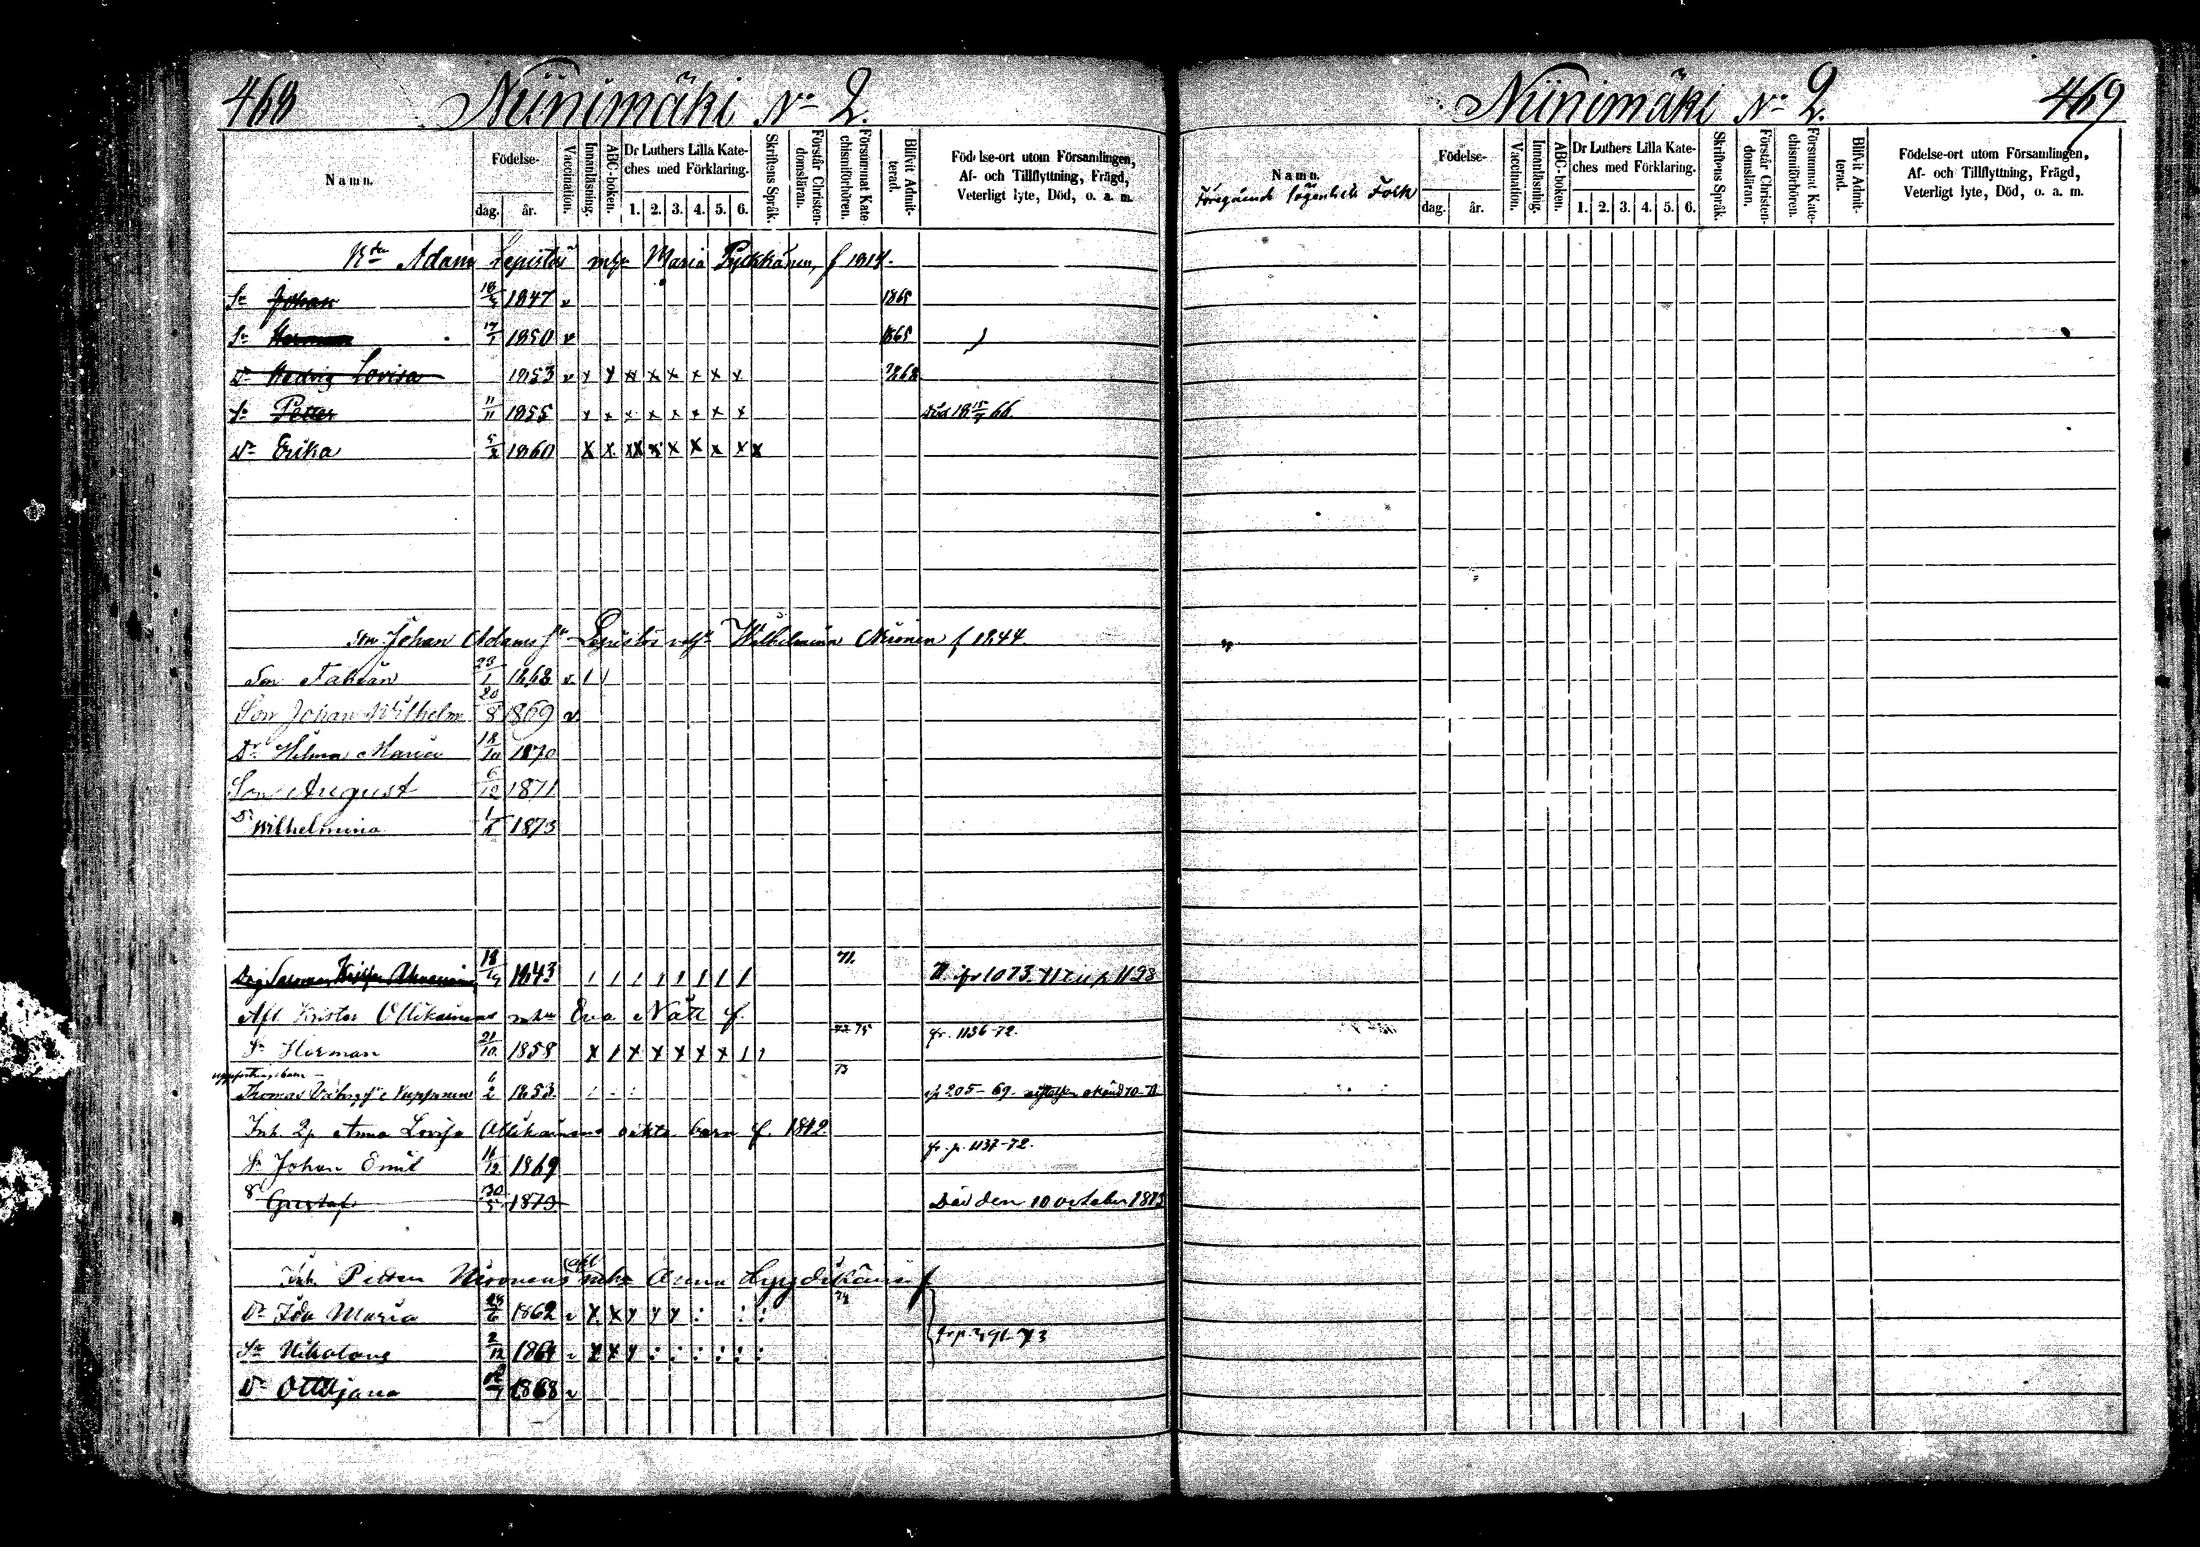 468 Niinimäki No 2.
Namn.
Födelse-
dag. år.
Vaccination.
Innanläsning.
ABC-boken.
Dr Luthers Lilla Kate-
ches med Förklaring.
1. 2. 3. 4. 5. 6.
Skriftens Språk.
Förstår Christen-
domsläran.
Försummat Kate-
chismiförhören.
Blifvit Admit-
terad.
Födelse-ort utom Församlingen,
Af- och Tillflyttning, Frägd,
Veterligt lyte, Död, o. a. m.
Adam Lepistös Maria Pylkkänen, f 1814.
Sn Johan 1847 v 1865
Sn Herman 17/1 1850 v 1865
Dr Hedvig Lovisa 1853 v x x x x x x x x
Sn Petter 11/11 1855 x x x x x x x x Död 18 15/7 66.
Dr Erika 1860 x x xx x x x x x x
Son Johan Adams Sn Lepistös Wilhelmina f 1844
Son Fabian 23/1 1868 v
Son Johan Wilhelm 20/8 1869 v
Dr Hilma Maria 18/10 1870
Son August 6/12 1871
Dr Wilhelmina 1873
1843 71.
Afl Krister Ollikainens Eva Nätt f.
Sn Herman 21/10 1858 x 1 x x x x x 1 1 75 fr. 1136-72.
Thomas 6/2 1853 73 205-69.
Inh. Anna Lovisa Ollikainens oäkta barn f. 1842
Sn Johan Emil 16/12 1869 fr. p. 1137-72.
Sn Gustaf 30/5 1873 Död den 10 october 1873
Inh. Petter Nironens Anna
Dr Ida Maria 1862 v x x
Sn Nikolaus 2/12 1864 v x x
Dr Ottiljana 1868 v
Niinimäki No 2. 469
Namn.
Föregående lägenhets Folk
Födelse-
dag. år.
Vaccination.
Innanläsning.
ABC-boken.
Dr Luthers Lilla Kate-
ches med Förklaring.
1. 2. 3. 4. 5. 6.
Skriftens Språk.
Förstår Christen-
domsläran.
Försummat Kate-
chismiförhören.
Blifvit Admit-
terad.
Födelse-ort utom Församlingen,
Af- och Tillflyttning, Frägd,
Veterligt lyte, Död, o. a. m.